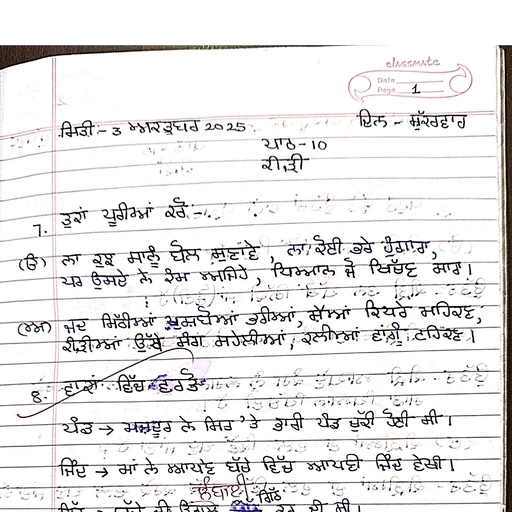 classmate
Date
Page 1
ਮਿਤੀ - 3 ਅਕਤੂਬਰ 2025 ਦਿਨ - ਸ਼ੁੱਕਰਵਾਰ
ਪਾਠ - 10
7. ਤੁਕਾਂ ਪੂਰੀਆਂ ਕਰੋ -
(ੳ) ਨਾ ਕੁਝ ਸਾਨੂੰ ਬੋਲ ਸੁਣਾਵੇ, ਨਾ ਕੋਈ ਭਰੇ ਹੁੰਗਾਰਾ,
ਪਰ ਉਸਦੇ ਨੇ ਰੰਗ ਅਜਿਹੇ, ਧਿਆਨ ਜੋ ਖਿੱਚਣ ਸਾਰਾ।
(ਅ) ਜਦ ਮਿੱਠੀਆਂ ਖ਼ੁਸ਼ਬੋਆਂ ਭਰੀਆਂ,
ਸੰਗ ਸਹੇਲੀਆਂ, ਕਲੀਆਂ ਵਾਂਗੂੰ ਟਹਿਕਣ।
8. ਵਾਕਾਂ ਵਿੱਚ ਵਰਤੋ
ਪੰਡ → ਮਜ਼ਦੂਰ ਦੇ ਸਿਰ 'ਤੇ ਭਾਰੀ ਪੰਡ ਚੁੱਕੀ ਹੋਈ ਸੀ।
ਜਿੰਦ → ਮਾਂ ਨੇ ਆਪਣੇ ਬੱਚੇ ਵਿੱਚ ਆਪਣੀ ਜਿੰਦ ਦੇਖੀ।
ਲੰਬਾਈ
ਗਿੱਠ